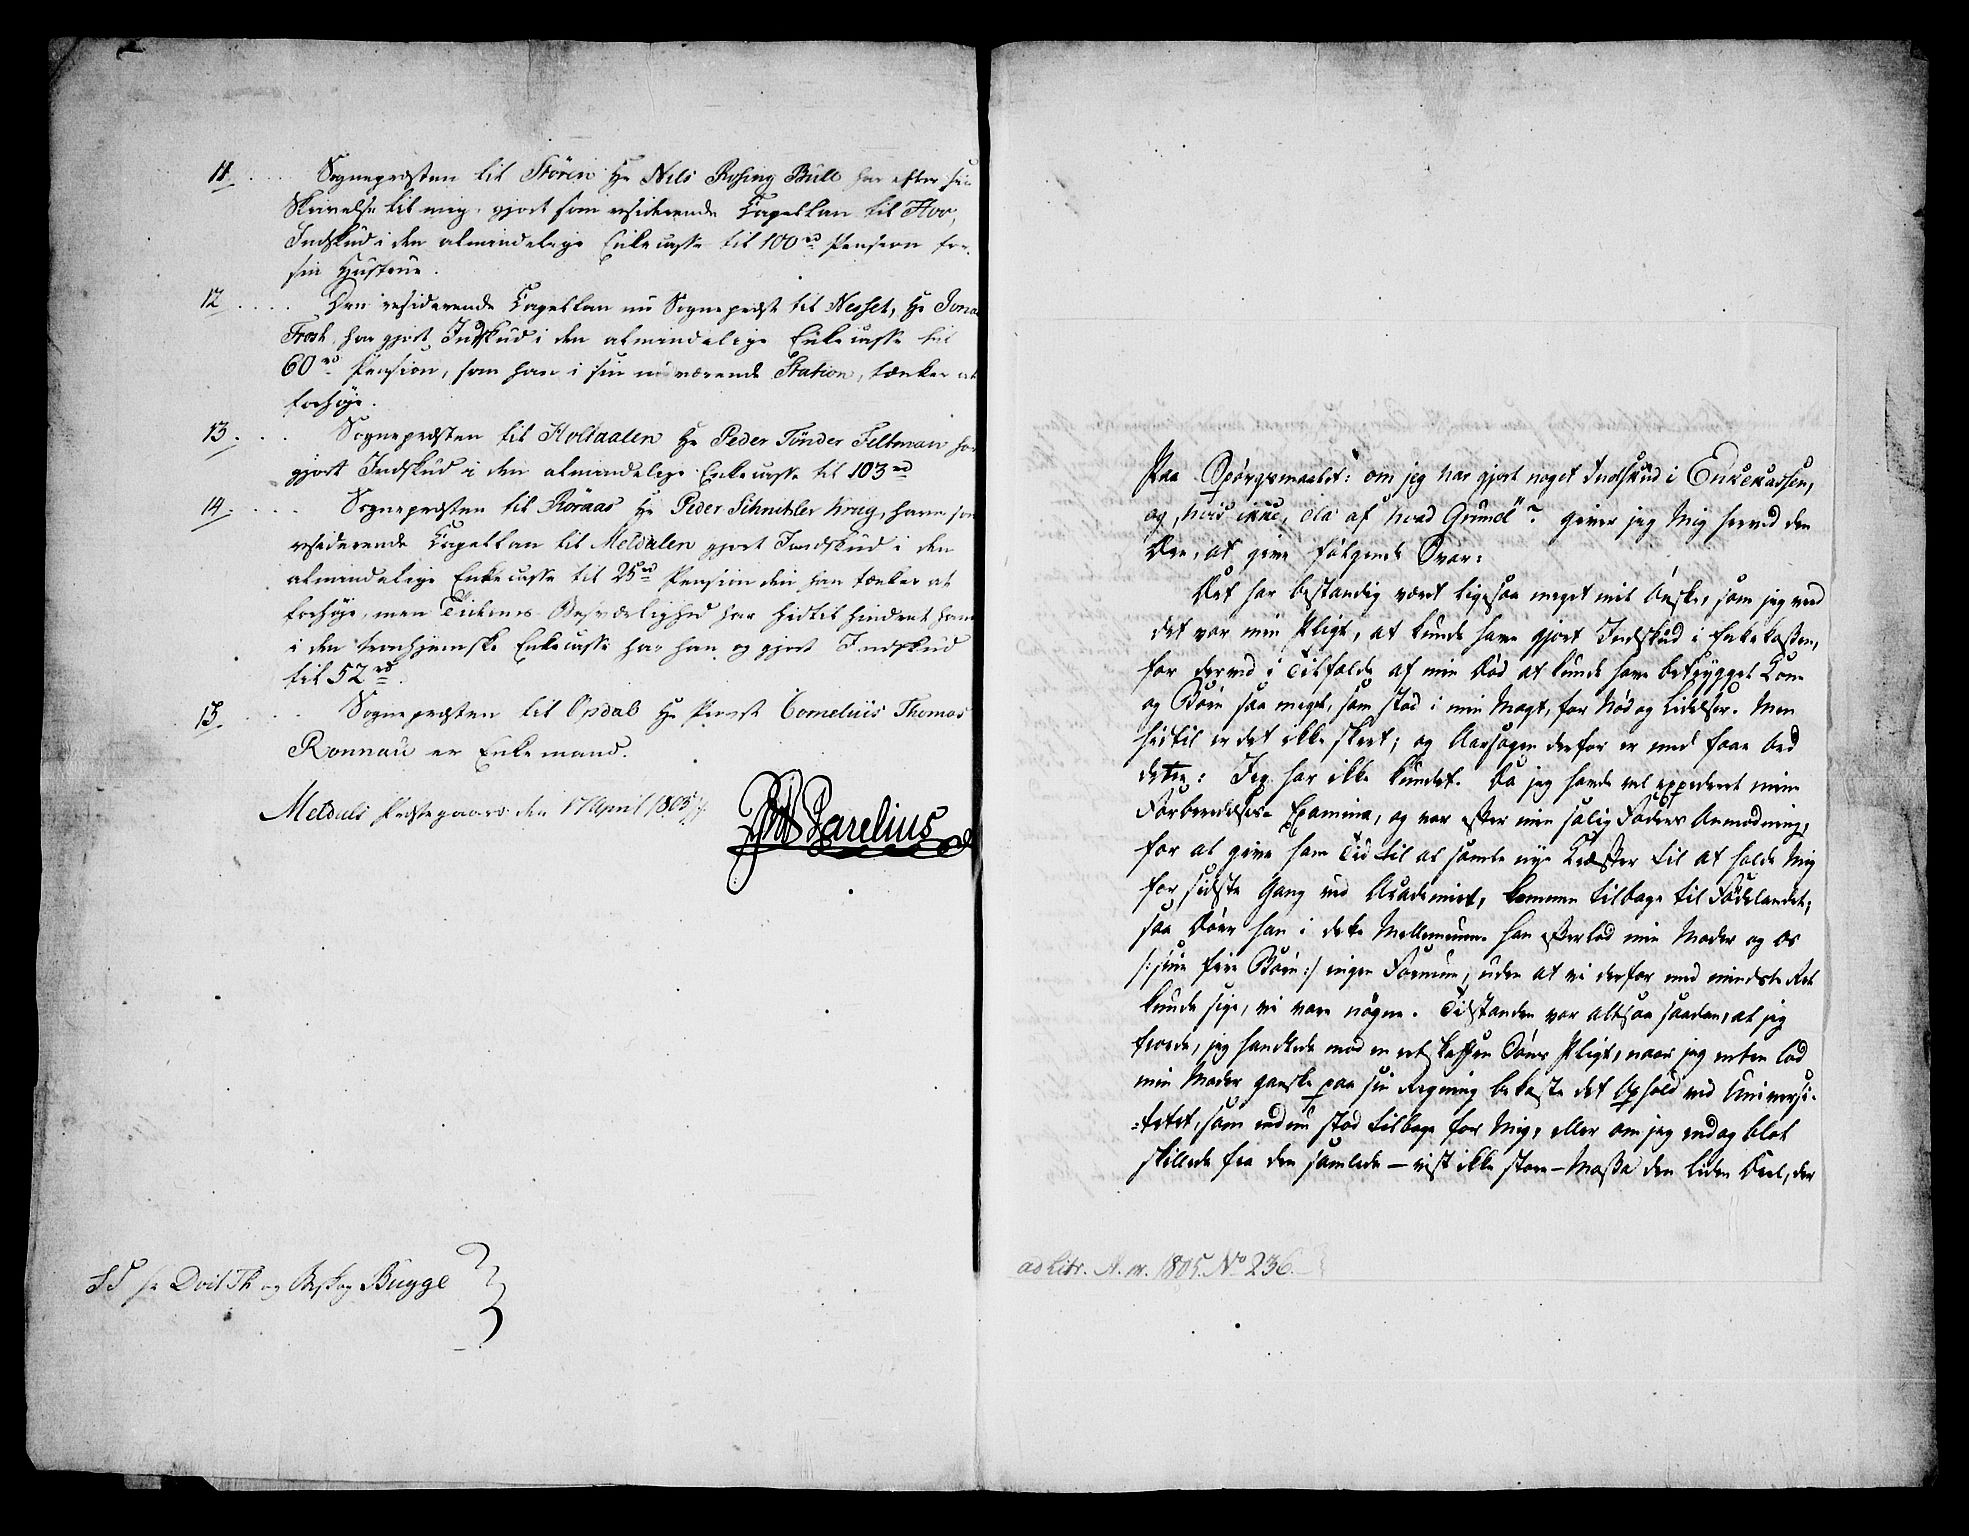 11. Sognepræsten til Stören Hr Nils Rosing Bull har efter sin
Skrivelse til mig, gjort som residerende Capellan til Hov,
Indskud i den almindelige Enkecasse til 100 rd Pension for
sin Hustrue.
12. Den residerende Capellan nu Sognepræst til Nesset, Hr Jonas
Frost, har gjort Indskud i den almindelige Enkecasse til
60 rd Pension, som han i sin nuværende Station, tænker at
forhöje.
13. Sognepræsten til Holtaalen Hr Peder Tönder Feltman har
gjort Indskud i den almindelige Enkecasse til 103 rd
14. Sognepræsten til Röraas Hr Peder Schnitler Krag, have som
residerende Capellan til Meldalen gjort Indskud i den
almindelige Enkecasse til 25 rd Pension den han tænker at
forhöje, men Tidernes Besværlighed har hidtil hindret ham
i den tronhjemske Enkecasse har han og gjort Indskud
til 52 rd.
15. Sognepræsten til Opdal Hr Provst Cornelius Thomas
Ronnau er Enkemand.
Meldals Præstegaard den 17 April 1805
Darelius
S T Hr Doct Th og Biskop Bugge
Paa Spörgsmaalet: om jeg har gjort noget Indskud i Enkekassen,
og, hvis ikke, da af hvad Grund"? giver jeg mig herved den
Ære, at give fölgende Svar:
Det har bestandig været ligesaa meget mit Önske, som jeg veed
det var min Pligt, at kunde have gjort Indskud i Enkekassen,
for derved i Tilfælde af min Död at kunde have betrygget Kone
og Börn saa meget, som stod i min Magt, for Nöd og Lidelser. Men
hidtil er det ikke skeet; og Aarsagen derfor er med faae Ord
dette: Jeg har ikke kundet. Da jeg havde vel expederet mine
Forberedelses Examina, og var efter min salig Faders Anmodning,
for at give ham Tid til at samle nye Kræfter til at holde mig
for sidste Gang ved Academiet, kommen tilbage til Födelandet,
saa döer han i dette Mellemrum. Han efterlod min Moder og os
/: sine fire Börn :/ ingen Formue, uden at vi derfor med mindste Ret
kunde sige, vi vare nögne. Tilstanden var altsaa saadan, at jeg
troede, jeg handlede mod en retskaffen Söns Pligt, naar jeg enten lod
min Moder ganske paa sin Regning bekoste det Ophold ved Universi-
=tetet, som endnu stod tilbage for mig, eller om jeg endog blot
skillede fra den samlede – vist ikke store – Massa den liden Deel, der
ad Litr. A. m. 1805. No 236.